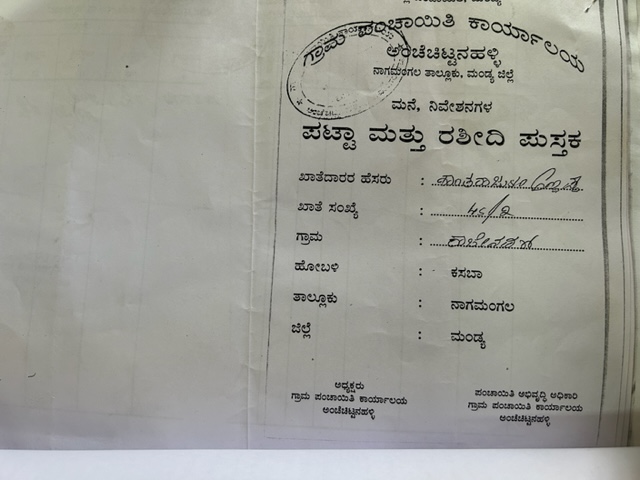 ಗ್ರಾಮ ಪಂಚಾಯಿತಿ ಕಾರ್ಯಾಲಯ
ಅಂಚೆಚಿಟ್ಟನಹಳ್ಳಿ
ನಾಗಮಂಗಲ ತಾಲ್ಲೂಕು, ಮಂಡ್ಯ ಜಿಲ್ಲೆ
ಮನೆ, ನಿವೇಶನಗಳ
ಪಟ್ಟಾ ಮತ್ತು ರಶೀದಿ ಪುಸ್ತಕ
ಖಾತೆದಾರರ ಹೆಸರು :
ಖಾತೆ ಸಂಖ್ಯೆ :
ಗ್ರಾಮ :
ಹೋಬಳಿ : ಕಸಬಾ
ತಾಲ್ಲೂಕು : ನಾಗಮಂಗಲ
ಜಿಲ್ಲೆ : ಮಂಡ್ಯ
ಅಧ್ಯಕ್ಷರು
ಗ್ರಾಮ ಪಂಚಾಯಿತಿ ಕಾರ್ಯಾಲಯ
ಅಂಚೆಚಿಟ್ಟನಹಳ್ಳಿ
ಪಂಚಾಯಿತಿ ಅಭಿವೃದ್ಧಿ ಅಧಿಕಾರಿ
ಗ್ರಾಮ ಪಂಚಾಯಿತಿ ಕಾರ್ಯಾಲಯ
ಅಂಚೆಚಿಟ್ಟನಹಳ್ಳಿ